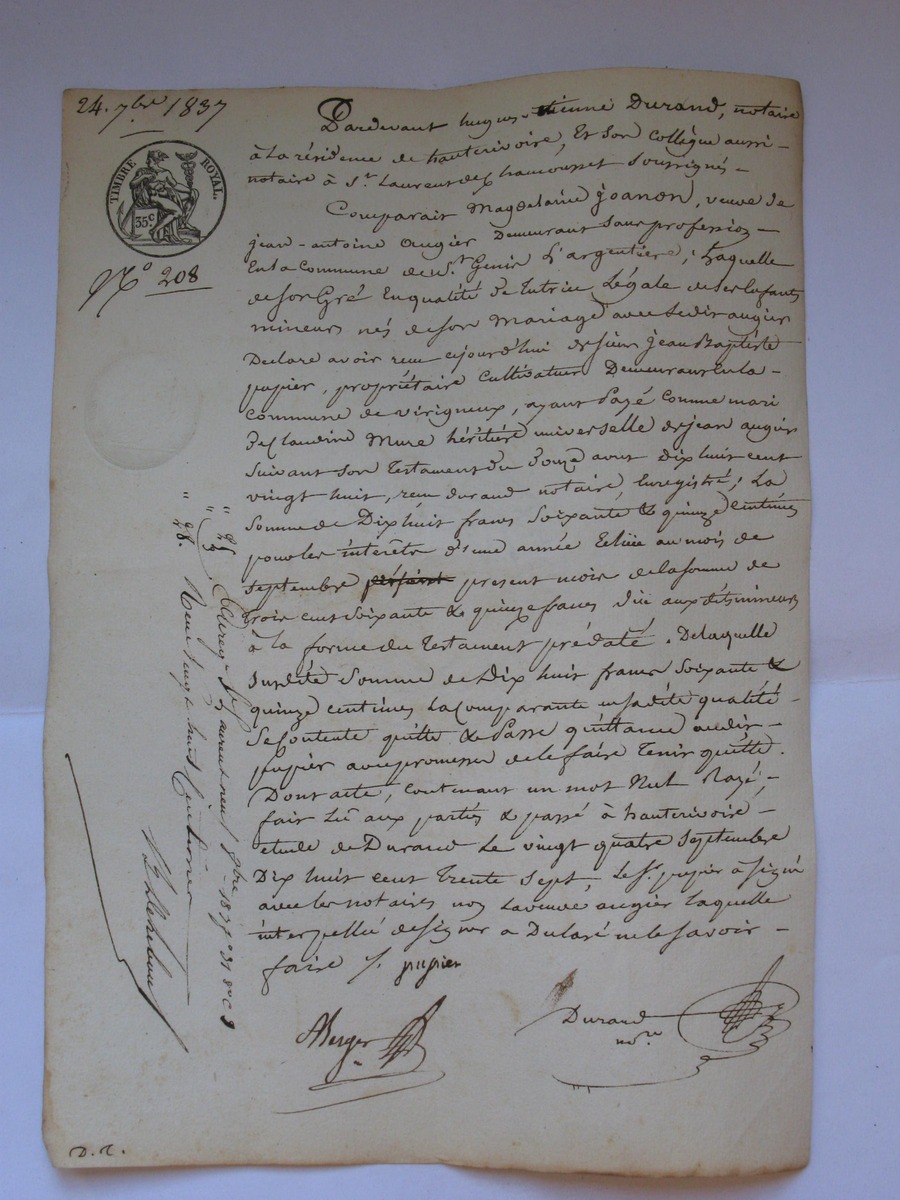 24. 7bre 1837
TIMBRE ROYAL.
35c.
No 208
Pardevant hugues etienne Durand, notaire
à la résidence de hauterivoire, Et son collègue aussi
notaire à St. Laurent de chamousset soussignés
Comparait Magdelaine joanon, veuve de
jean-antoine augier Demeurant sans profession
En la commune de St. Genis L'argentière; Laquelle
de son Gré En qualité De Tutrice Légale de ses Enfants
mineurs nés de son Mariage avec ledit augier
Declare avoir reçu cejourd'hui de sieur jean Baptiste
pupier, propriétaire cultivateur Demeurant En la
commune de virigneux, ayant payé comme mari
De claudine Mure héritière universelle de jean augier
suivant son Testament du Douze aout Dix huit cent
vingt huit, reçu durand notaire, Enregistré; La
somme de Dix huit francs soixante & quinze centimes
pour les intérêts d'une année Echue au mois de
septembre present mois de la somme de
trois cent soixante & quinze francs Due aux dits mineurs
à la forme du Testament prédaté. De laquelle
susdite somme de Dix huit francs soixante &
quinze centimes La comparante en sadite qualité
se contente quitte & passe quittance audit
pupier avec promesse de le faire Tenir quitte.
Dont acte, contenant un mot Nul Rayé;
fait Lu aux parties & passé à hauterivoire
etude de Durand Le vingt quatre septembre
Dix huit cent Trente sept, le Sr. pupier à signé
avec les notaires non la veuve augier laquelle
interpellée de signer a Declaré ne le savoir
faire /. pupier
ABerger
Durand
nore
" 25
" 3
" 28.
Enreg. à St Laurent
vingt huit Centimes
D. R.